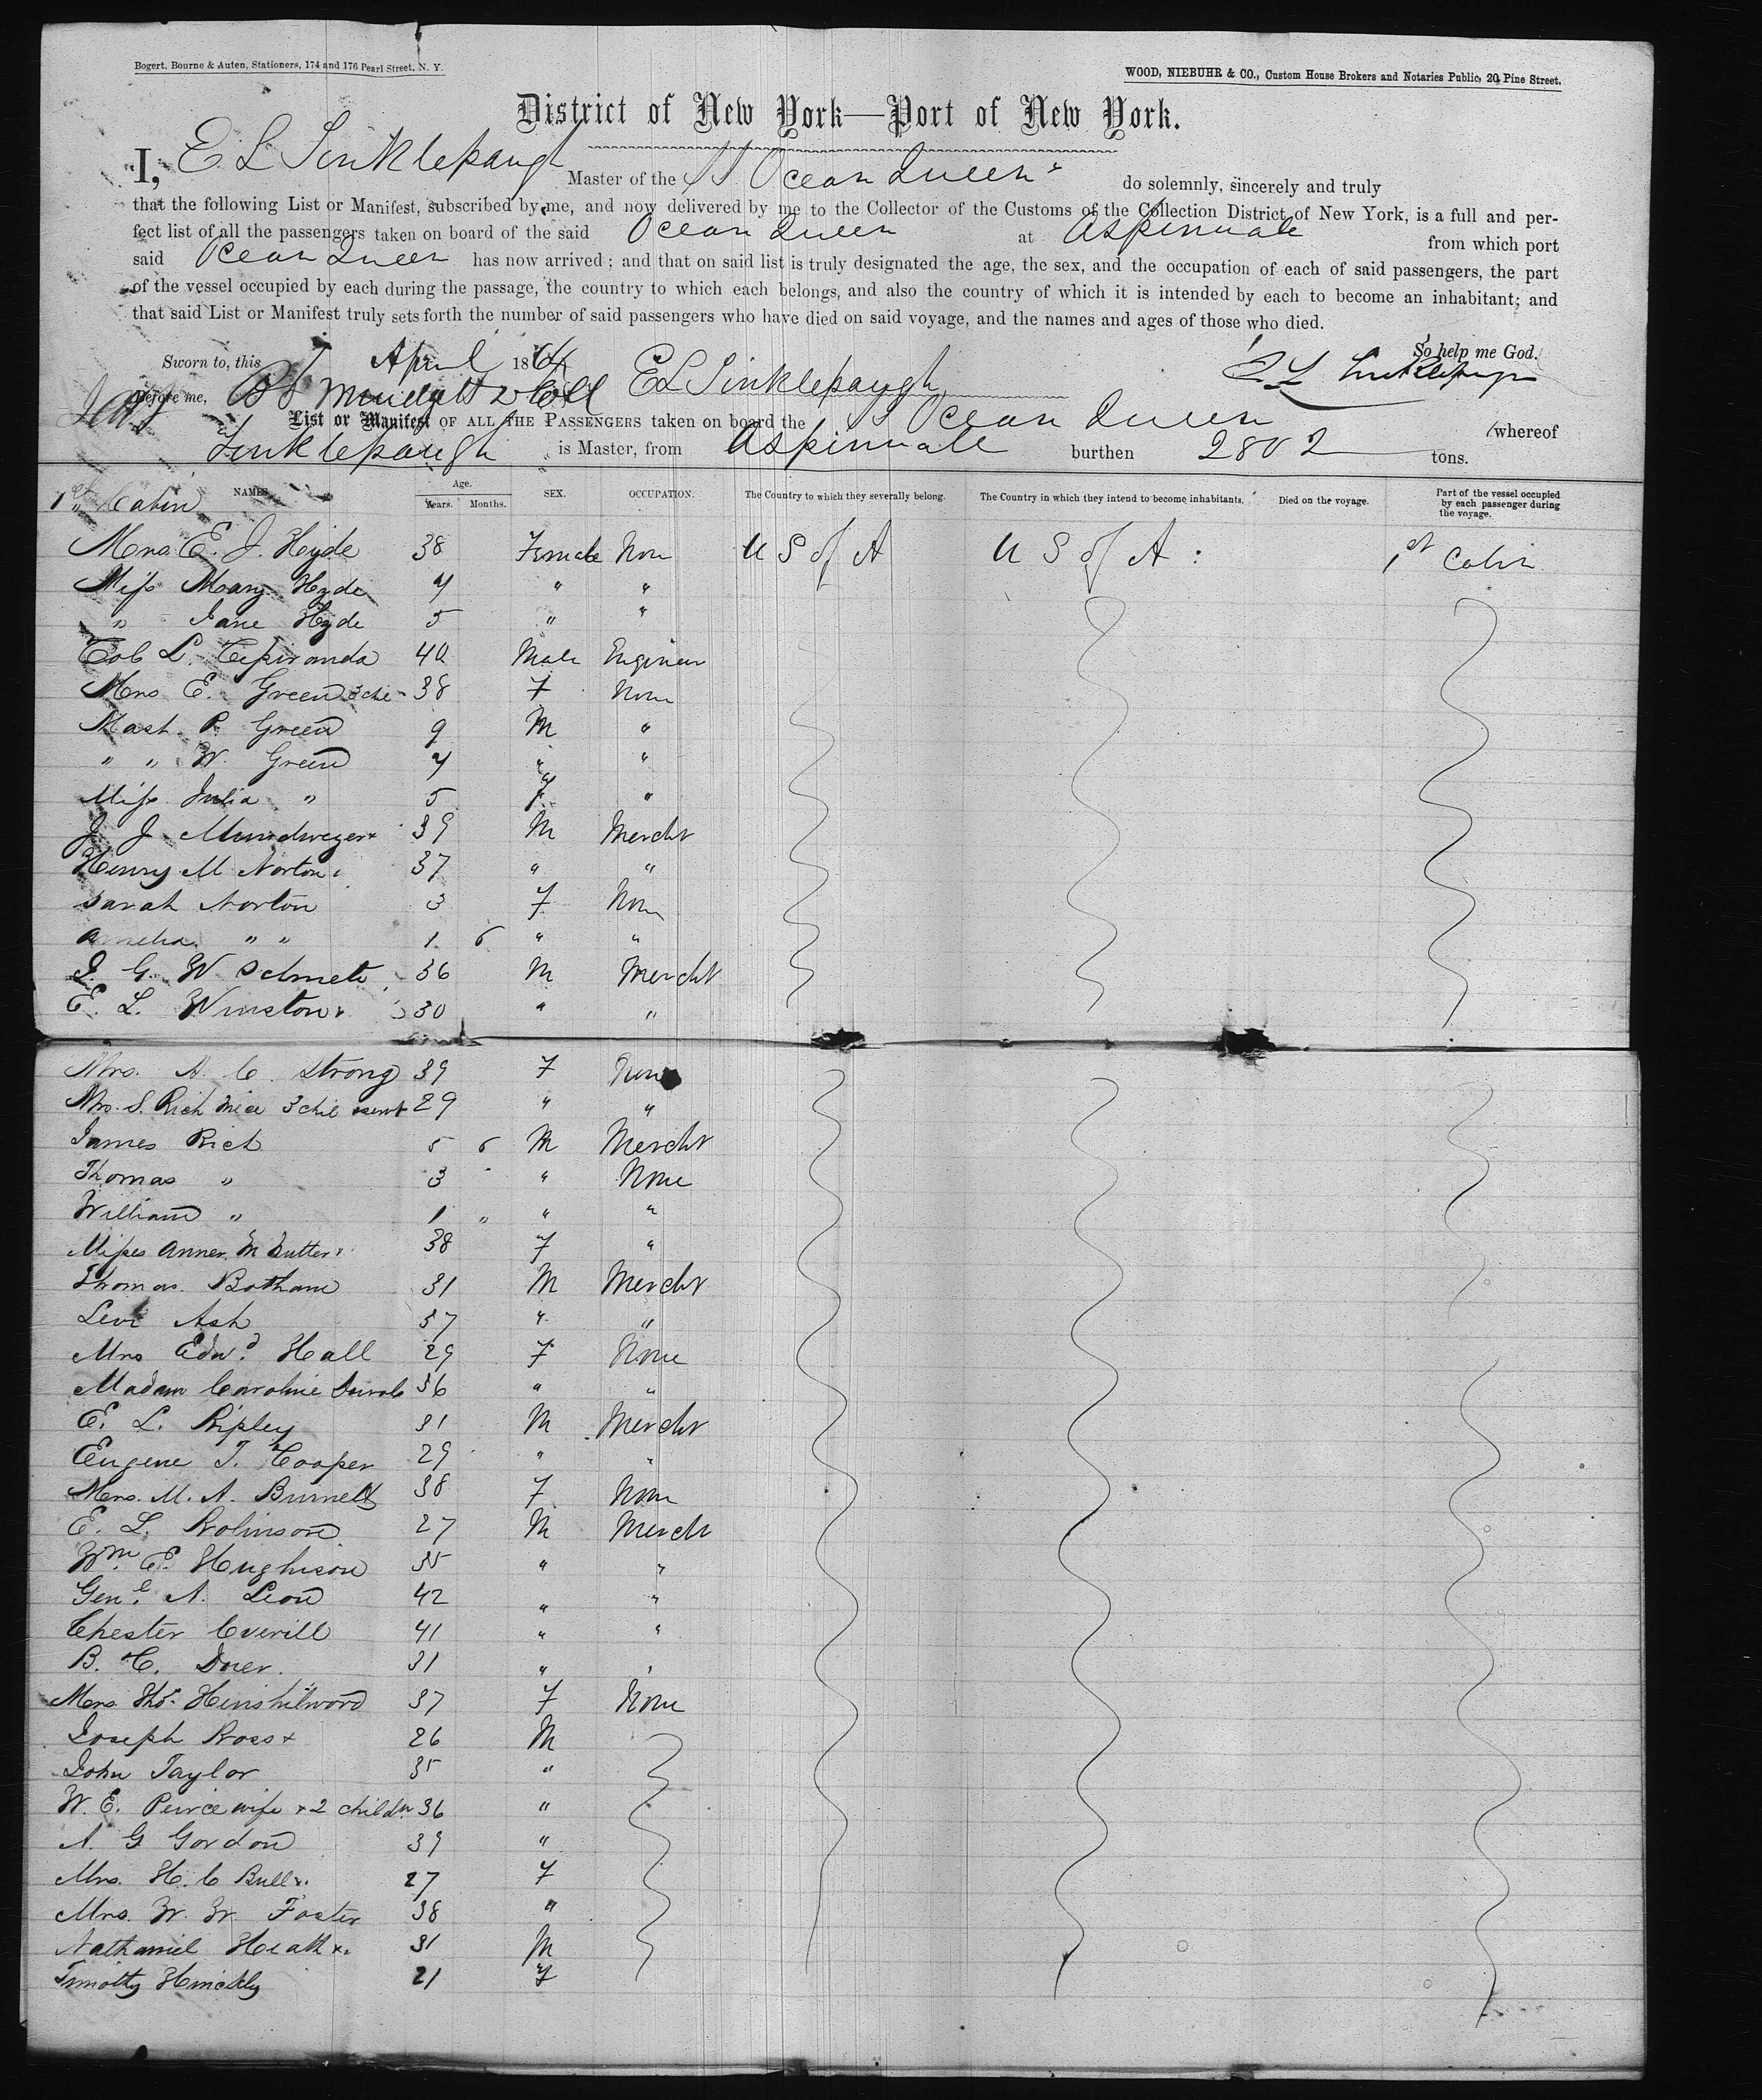 Bogert, Bourne & Auten, Stationers, 174 and 176 Pearl Street, N. Y.
WOOD, NIEBUHR & CO., Custom House Brokers and Notaries Public, 20 Pine Street.
District of New York—Port of New York.
I, E L Tinklepaugh Master of the SS Ocean Queen do solemnly, sincerely and truly
that the following List or Manifest, subscribed by me, and now delivered by me to the Collector of the Customs of the Collection District of New York, is a full and per-
fect list of all the passengers taken on board of the said Ocean Queen at Aspinwall from which port
said Ocean Queen has now arrived; and that on said list is truly designated the age, the sex, and the occupation of each of said passengers, the part
of the vessel occupied by each during the passage, the country to which each belongs, and also the country of which it is intended by each to become an inhabitant; and
that said List or Manifest truly sets forth the number of said passengers who have died on said voyage, and the names and ages of those who died.
So help me God.
Sworn to, this April 1864 E L Tinklepaugh
Before me, E L Tinklepaugh
List or Manifest OF ALL THE PASSENGERS taken on board the SS Ocean Queen whereof
Tinklepaugh is Master, from Aspinwall burthen 2802 tons.
NAMES. Age. Years. Months. SEX. OCCUPATION. The Country to which they severally belong. The Country in which they intend to become inhabitants. Died on the voyage. Part of the vessel occupied by each passenger during the voyage.
1st Cabin
Mrs. E. J. Hyde 38 Female Non U S of A U S of A 1st Cabin
Miss Mary Hyde 7 " "
" Jane Hyde 5 " "
L. 40 Male Engineer
Mrs E. Green 3 chi 38 F Non
Mast. P. Green 9 M "
" " W. Green 7 " "
Miss Julia " 5 F "
J J 39 M Mercht
Henry M Norton 37 " "
Sarah Norton 3 F Non
Amelia " " 1 6 " "
J. G. W 36 M Mercht
E. L. Winston 30 " "
Mrs. A. C. Strong 39 F None
Mrs. S. Rich 3 chil 29 " "
James Rich 5 6 M Mercht
Thomas " 3 " None
William " 1 " " "
Misses 38 F "
Thomas Botham 31 M Mercht
Levi Ash 37 " "
Mrs Edwd Hall 29 F None
Madam Caroline 36 " "
E. L. Ripley 31 M Mercht
Eugene T. Cooper 29 " "
Mrs. M. A. Burnett 38 F Non
E. L. Robinson 27 M Merch
Wm. E. Hughison 35 " "
Genl A. Leon 42 " "
Chester Averill 41 " "
B. C. Duer. 31 " "
Mrs. Thos. Henshilword 37 F None
Joseph Ross 26 M
John Taylor 35 "
W. E. Peirce wife & 2 childn 36 "
A. G Gordon 39 "
Mrs. H. C Bull 27 F
Mrs. W. W. Foster 38 "
Nathaniel Heath 31 M
Timothy Hinckly 21 F